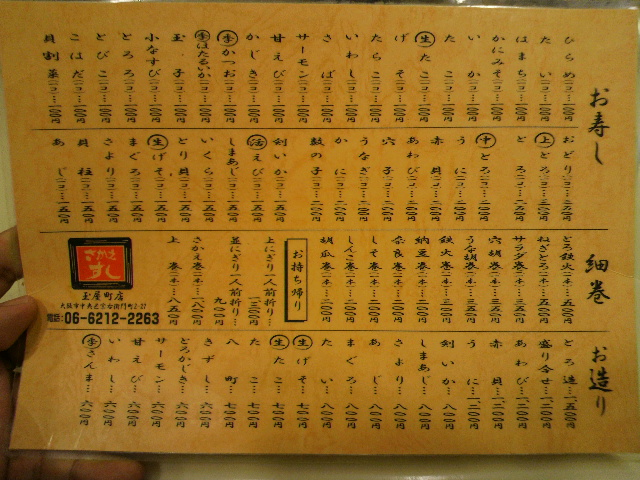 お寿し
ひらめ二コ…一〇〇円
たい二コ…一〇〇円
はまち二コ…一〇〇円
かにみそ二コ…一〇〇円
いか二コ…一〇〇円
たこ二コ…一〇〇円
生たこ二コ…一〇〇円
げそ二コ…一〇〇円
たらこ二コ…一〇〇円
いわし二コ…一〇〇円
さば二コ…一〇〇円
サーモン二コ…一〇〇円
甘えび二コ…一〇〇円
かじき二コ…一〇〇円
季かつお二コ…一〇〇円
季ほたるいか二コ…一〇〇円
玉子二コ…一〇〇円
小なすび二コ…一〇〇円
とろろ二コ…一〇〇円
とびこ二コ…一〇〇円
こはだ二コ…一〇〇円
貝割菜二コ…一〇〇円
おどり
上とろ
とろ
中とろ
うに
赤貝
あわび
穴子
うなぎ
かに
数の子
剣いか二コ…一五〇円
活えび二コ…一五〇円
しまあじ二コ…一五〇円
いくら二コ…一五〇円
とり貝二コ…一五〇円
生げそ二コ…一五〇円
まぐろ二コ…一五〇円
さより二コ…一五〇円
貝柱二コ…一五〇円
あじ二コ…一五〇円
細巻
とろ鉄火
ねぎとろ
サラダ巻
穴胡巻
うな胡巻
鉄火巻
納豆巻
奈良巻
しそ巻
しんこ巻
胡瓜巻
お持ち帰り
上にぎり一人前折り…一三〇〇円
並にぎり一人前折り…九〇〇円
さかえ巻
上巻
さかえ
すし
玉屋町店
大阪市中央区宗右衛門町2-27
電話:06-6212-2263
お造り
とろ造…一五〇〇円
盛り合せ…一二〇〇円
あわび…一二〇〇円
赤貝…一二〇〇円
うに…一二〇〇円
剣いか…八〇〇円
しまあじ…八〇〇円
さより…八〇〇円
あじ…八〇〇円
まぐろ…八〇〇円
たい…八〇〇円
生げそ…七〇〇円
生たこ…七〇〇円
たこ…七〇〇円
八町…七〇〇円
きずし…六〇〇円
とろかじき…六〇〇円
サーモン…六〇〇円
甘えび…六〇〇円
いわし…六〇〇円
季さんま…六〇〇円